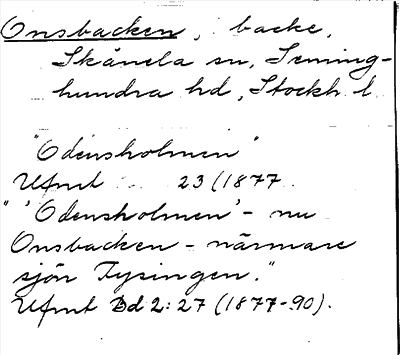 Onsbacken, backe,
Skånela sn, Seming-
hundra hd, Stockh. l.
"Odensholmen"
Ufmt 23 (1877
"'Odensholmen' - nu
Onsbacken - närmare
sjön Fysingen."
Ufmt Bd 2: 27 (1877-90).